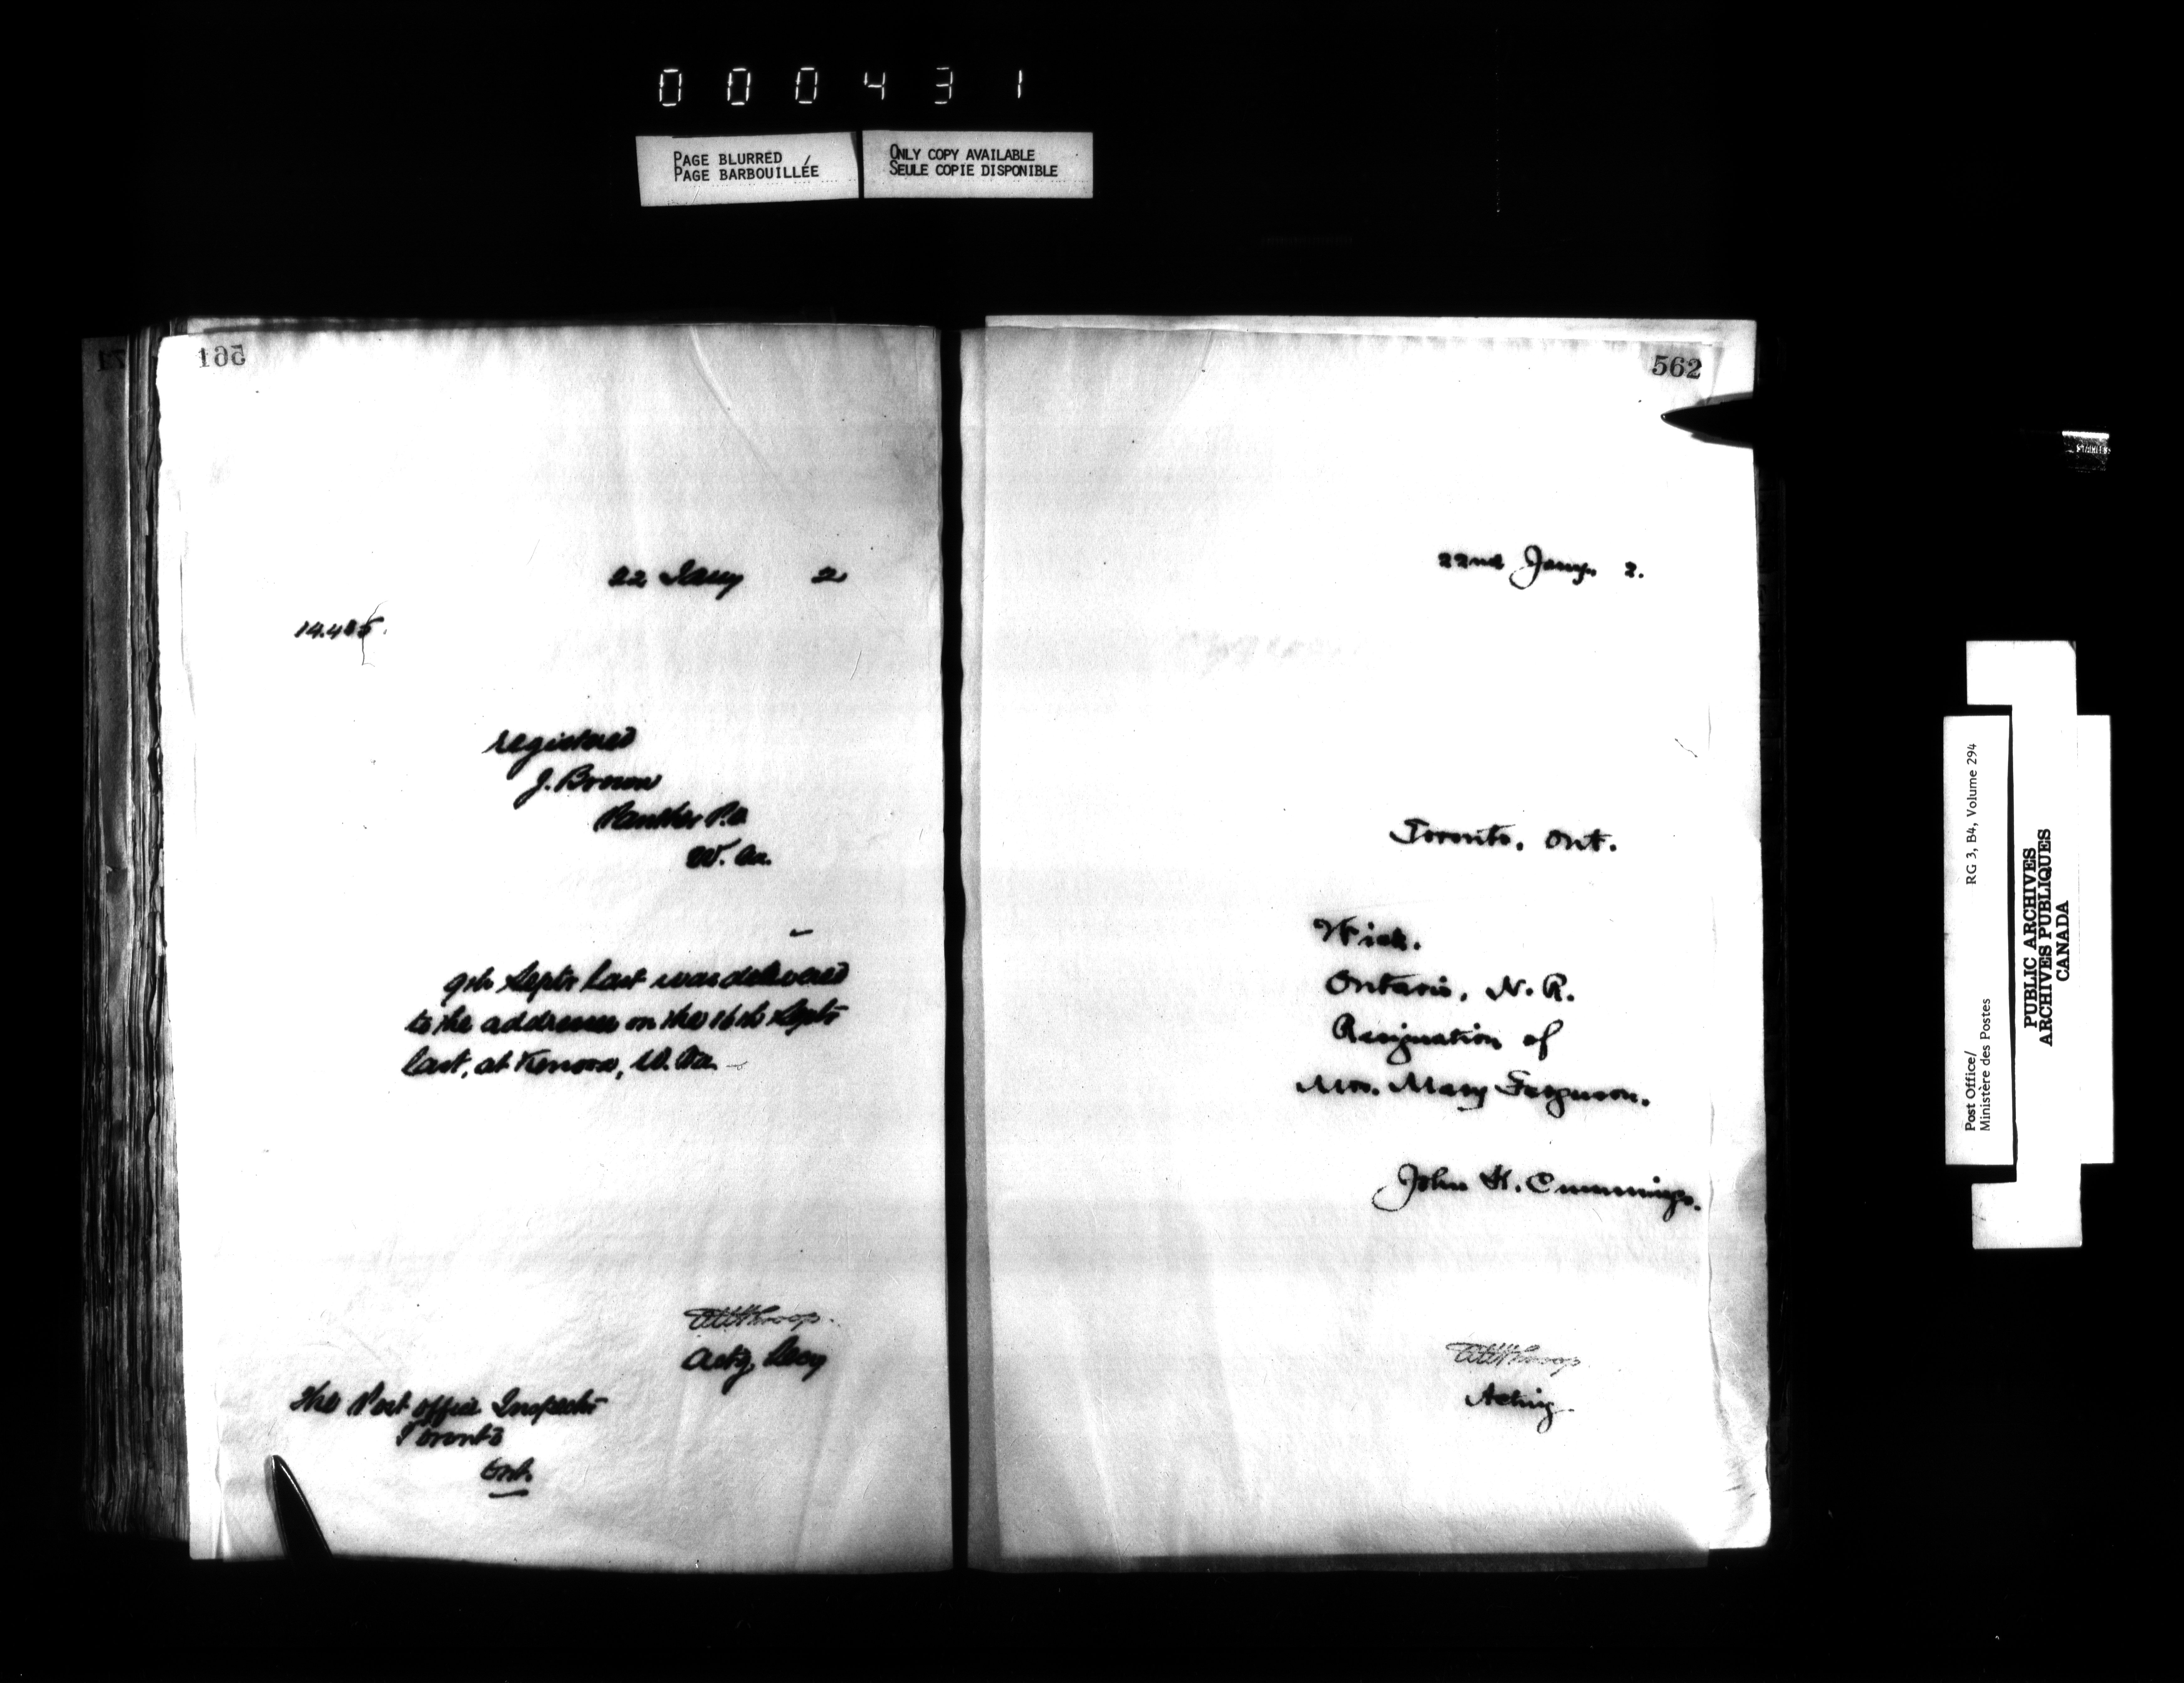 000431
PAGE BLURRED
PAGE BARBOUILLÉE
ONLY COPY AVAILABLE
SEULE COPIE DISPONIBLE
561
22 Jany 2
registered
J. Brown
P.O
W. Va.
9th Septr last was delivered
to the addressee on the 16th Septr
last, at Kenova, W. Va.
Actg. Secy
The Post Office Inspector
Toronto
Ont.
562
22nd Jany. 2.
Toronto, Ont.
Wick.
Ontario, N. R.
Resignation of
Mrs. Mary Ferguson.
John H. Cummings.
Acting
Post Office/
Ministère des Postes
RG 3, B4, Volume 294
PUBLIC ARCHIVES
ARCHIVES PUBLIQUES
CANADA